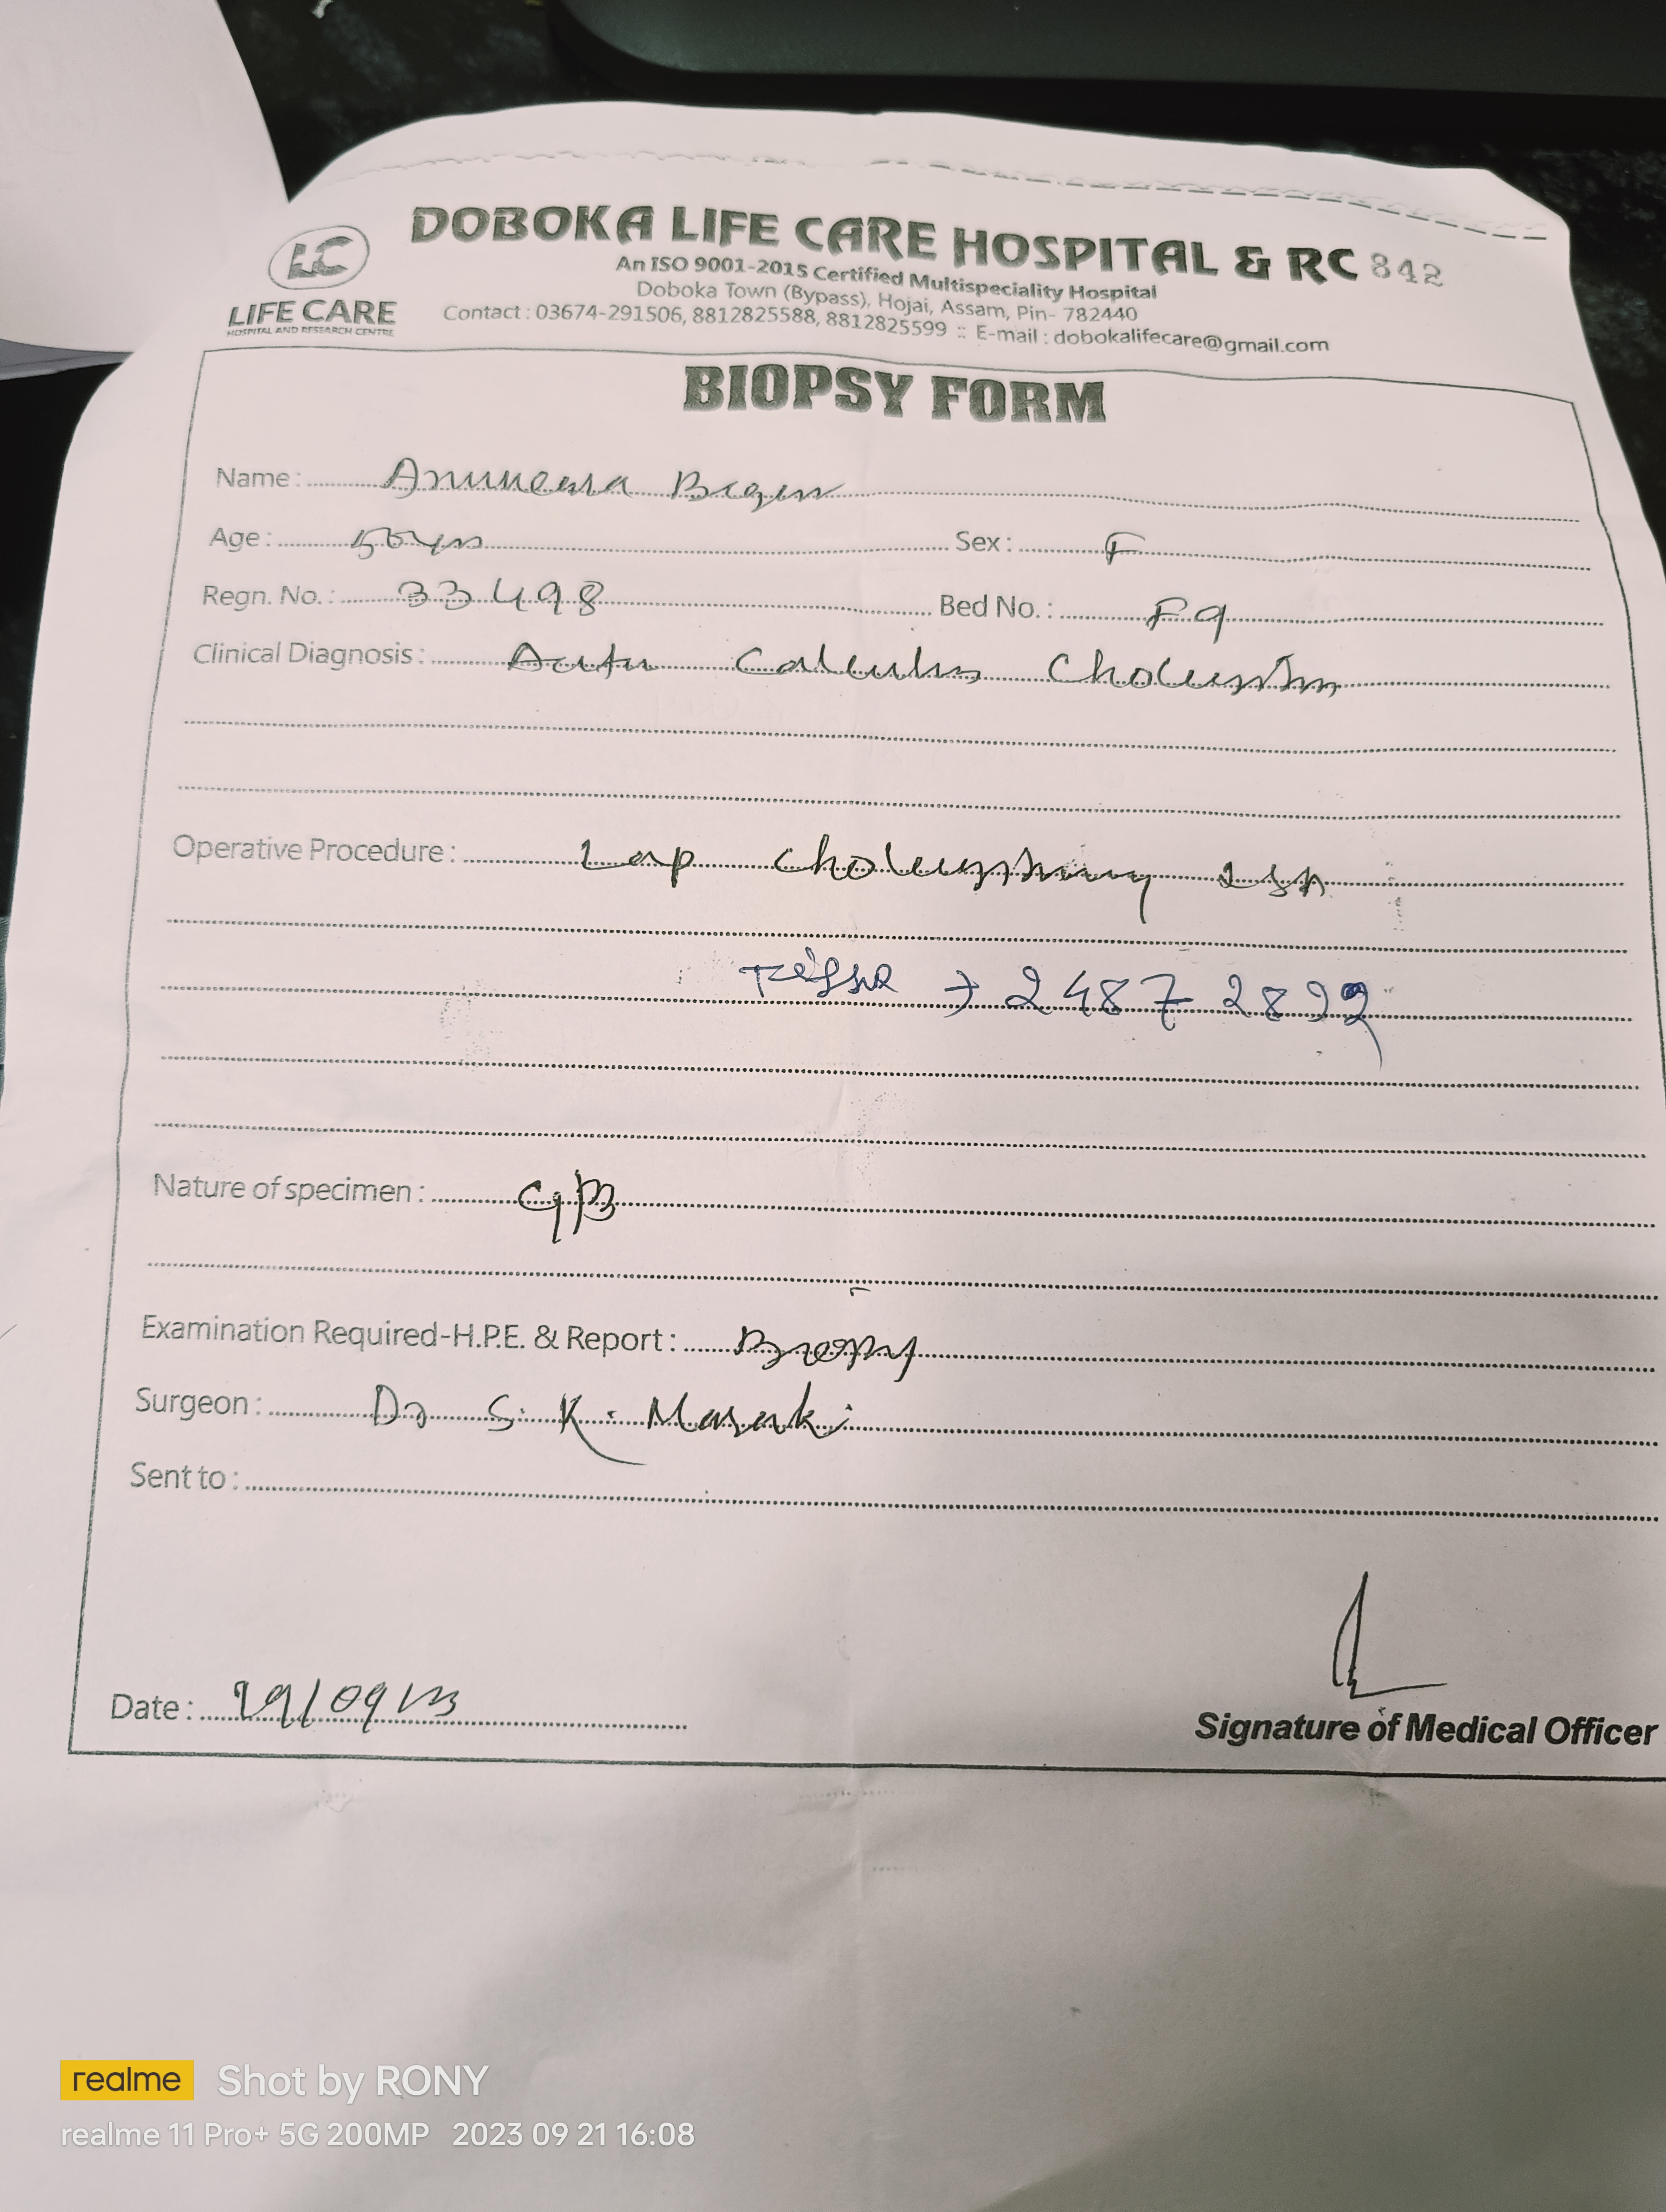 DOBOKA LIFE CARE HOSPITAL & RC 842
LC
LIFE CARE
HOSPITAL AND RESEARCH CENTRE
An ISO 9001-2015 Certified Multispeciality Hospital
Doboka Town (Bypass), Hojai, Assam, Pin- 782440
Contact : 03674-291506, 8812825588, 8812825599 :: E-mail : dobokalifecare@gmail.com
BIOPSY FORM
Name :
Age : Sex : F
Regn. No. : 33498 Bed No. : F9
Clinical Diagnosis : Calculus
Operative Procedure : Lap
→ 2487 2892
Nature of specimen : GB
Examination Required-H.P.E. & Report : Biopsy
Surgeon : Dr S. K.
Sent to :
Date :
Signature of Medical Officer
realme Shot by RONY
realme 11 Pro+ 5G 200MP 2023 09 21 16:08